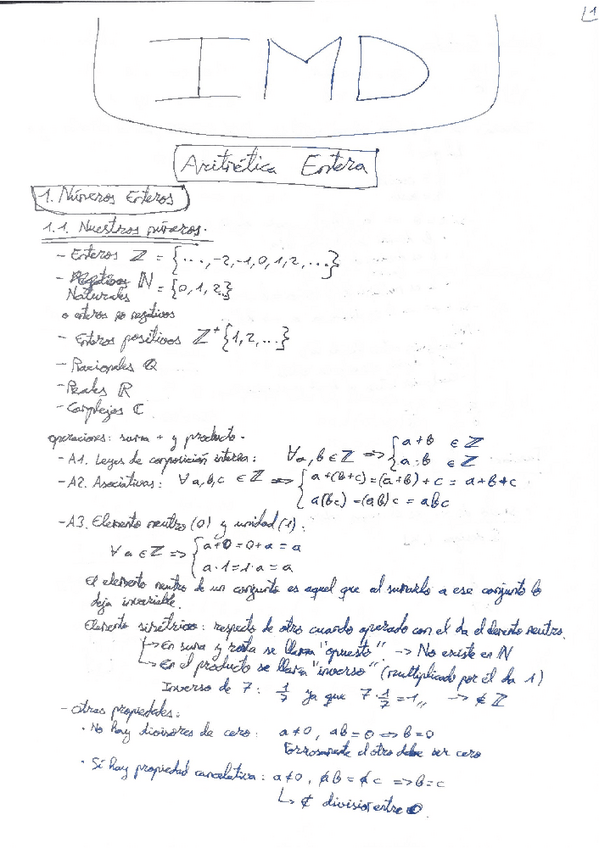 1
IMD
Aritmética Entera
1. Números Enteros
1.1. Nuestros números.
- Enteros ℤ = {..., -2, -1, 0, 1, 2, ...}
- Naturales ℕ = {0,1,2}
o enteros no negativos
- Enteros positivos ℤ⁺{1,2,...}
- Racionales ℚ
- Reales ℝ
- Complejos ℂ
operaciones: suma + y producto ·
- A1. Leyes de composición interna: ∀a,b ∈ ℤ => { a+b ∈ ℤ
a·b ∈ ℤ
- A2. Asociativas: ∀a,b,c ∈ ℤ => { a+(b+c)=(a+b)+c = a+b+c
a(bc)=(ab)c = abc
- A3. Elemento neutro (0) y unidad (1):
∀a ∈ ℤ => { a+0=0+a=a
a·1=1·a=a
El elemento neutro de un conjunto es aquel que al sumarlo a ese conjunto lo
deja invariable.
Elemento simétrico: respecto de otro cuando operado con el da el elemento neutro.
↳ En suma y resta se llama "opuesto" -> No existe en ℕ
↳ En el producto se llama "inverso" (multiplicado por él da 1)
Inverso de 7: 1/7 ya que 7·1/7=1,, -> ∉ ℤ
- Otras propiedades:
· No hay divisores de cero: a≠0, ab=0 => b=0
Forzosamente el otro debe ser cero
· Sí hay propiedad cancelativa: a≠0, ab=ac => b=c
↳ ∄ division entre 0.